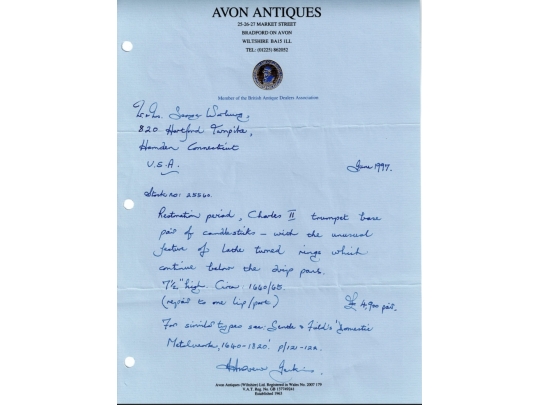 AVON ANTIQUES
25-26-27 MARKET STREET
BRADFORD ON AVON
WILTSHIRE BA15 1LL
TEL: (01225) 862052
Member of the British Antique Dealers Association
820 Hartford Turnpike,
Hamden Connecticut
U.S.A.
June 1997.
Stock no: 25560.
Restoration period, Charles II trumpet base
pair of candlesticks - with the unusual
feature of lathe turned rings which
continue below the drip pans.
7½" high Circa: 1640/65.
(repair to one lip/part)
£4,900 pair.
For similar types see: & Field's 'Domestic
Metalwork, 1640-1820'. p/121-122.
Avon Antiques (Wiltshire) Ltd. Registered in Wales No. 2007 179
V.A.T. Reg. No. GB 137749261
Established 1963